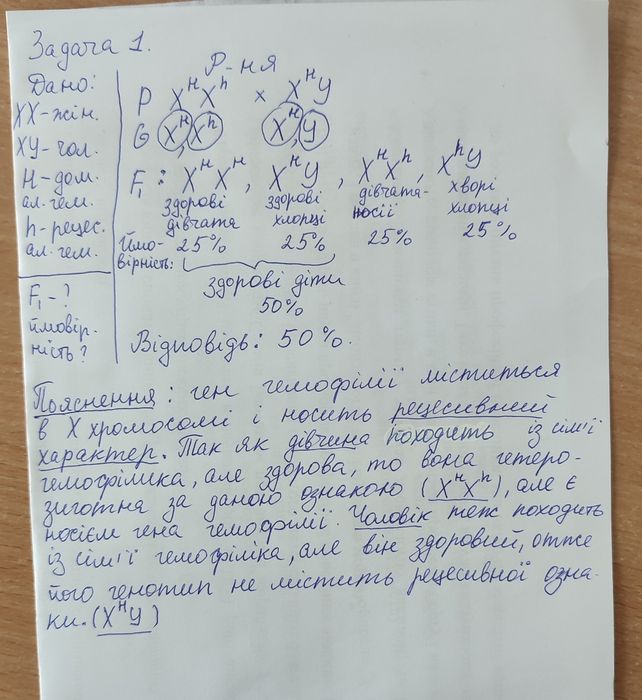 Задача 1.
Р-ня
Дано:
ХХ-жін.
ХУ-чол.
Н-дом.
ал.гем.
h-рецес.
ал.гем.
F₁-?
ймовір-
ність?
P XᴴXʰ × XᴴY
G Xᴴ, Xʰ Xᴴ, Y
F₁: XᴴXᴴ, XᴴY, XᴴXʰ, XʰY
здорові дівчата здорові хлопці дівчата-носії хворі хлопці
Ймо-вірність: 25% 25% 25% 25%
здорові діти
50%
Відповідь: 50%.
Пояснення: ген гемофілії міститься
в Х хромосомі і носить рецесивний
характер. Так як дівчина походить із сім'ї
гемофіліка, але здорова, то вона гетеро-
зиготна за даною ознакою (XᴴXʰ), але є
носієм гена гемофілії. Чоловік теж походить
із сім'ї гемофіліка, але він здоровий, отже
його генотип не містить рецесивної озна-
ки. (XᴴY)